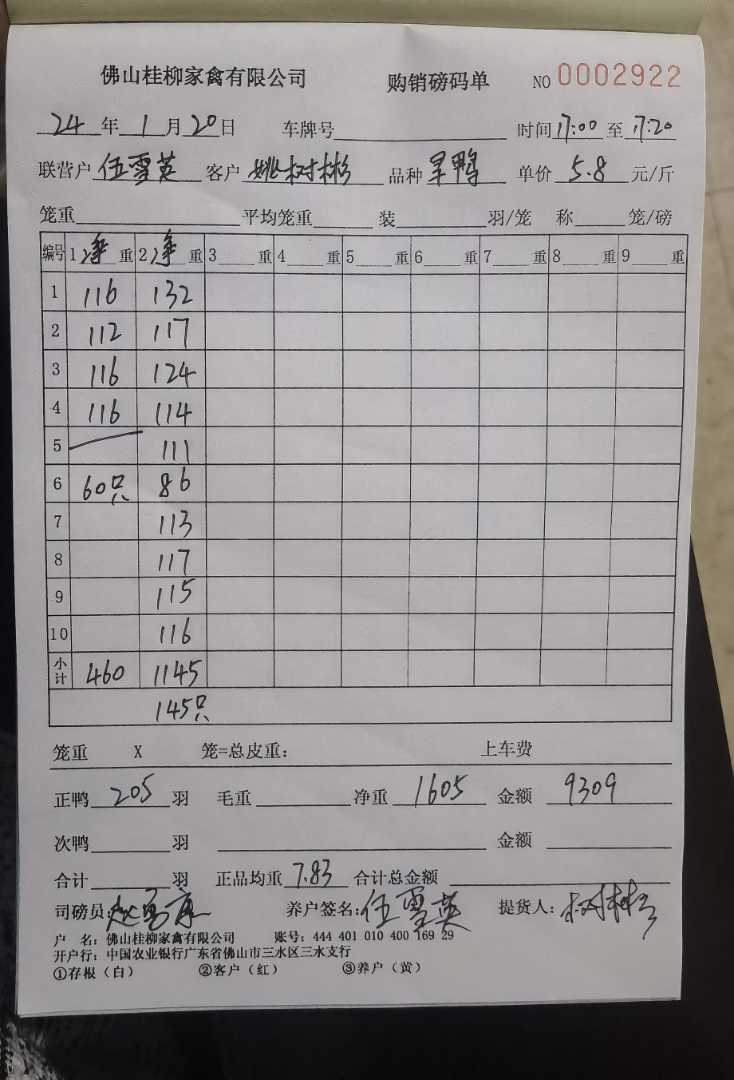 佛山桂柳家禽有限公司 购销磅码单 NO 0002922
24 年 1 月 20 日 车牌号 时间 17:00 至 17:20
联营户 伍雪英 客户 姚树彬 品种 旱鸭 单价 5.8 元/斤
笼重 平均笼重 装 羽/笼 称 笼/磅
编号 1 净 重 2 净 重 3 重 4 重 5 重 6 重 7 重 8 重 9 重
1 116 132
2 112 117
3 116 124
4 116 114
5 111
6 60只 86
7 113
8 117
9 115
10 116
小计 460 1145
145只
笼重 X 笼=总皮重: 上车费
正鸭 205 羽 毛重 净重 1605 金额 9309
次鸭 羽 金额
合计 羽 正品均重 7.83 合计总金额
司磅员: 养户签名: 伍雪英 提货人:
户 名: 佛山桂柳家禽有限公司 账号: 444 401 010 400 169 29
开户行: 中国农业银行广东省佛山市三水区三水支行
①存根（白） ②客户（红） ③养户（黄）